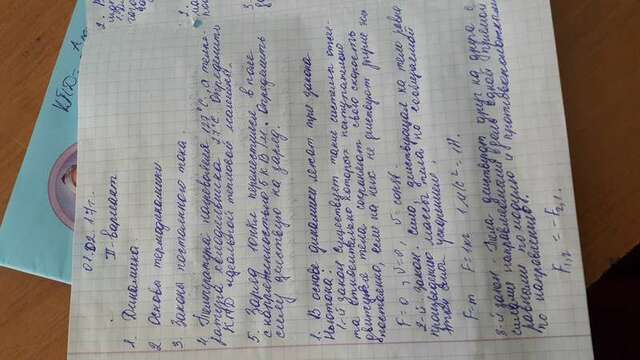 КПД=
01.02.17г.
II-вариант
1. Динамика.
2 Основы термодинамики
3. Законы постоянного тока.
4. Температура нагревателя 127°С, а темпе-
ратура холодильника 27°С. Определить
КПД идеальной тепловой машины.
5. Заряд 10нКл переместился в поле
с напряженностью 5 кВ/м. Определить
силу действую на заряд.
1. В основе динамики лежат три закона
Ньютона:
1-й закон существует такие системы отсче-
та относительно которых поступательно
движущие тела сохраняют свою скорость
постоянно, если на них не действуют другие
F=0, υ=0, υ=const.
2-й закон. Сила, действующая на тело равна
произведению массы тела на сообщаемой
этой силы ускорением.
F=m F=1кг 1м/с²=1Н.
3-й закон. Тела действуют друг на друга с
силами направленными вдоль одной прямой
равными по модулю и противоположными
по направлению.
F1,2 = -F2,1.